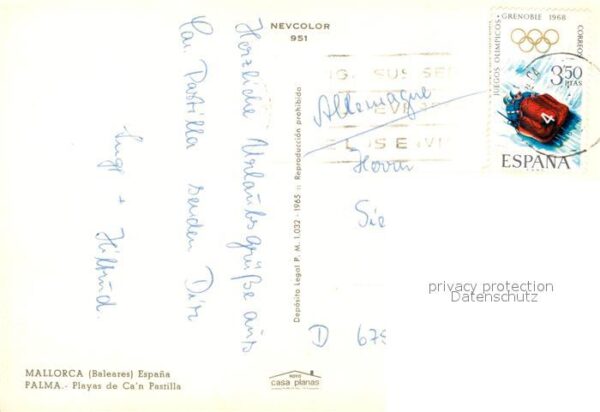 NEVCOLOR
951
Herzliche Urlaubsgrüße aus
Can Pastilla senden Dir
+ Hiltrud.
Depósito Legal P. M. 1.032 - 1965 :: Reproducción prohibida
Allemagne
Herrn
Sie
D 679
JUEGOS OLIMPICOS · GRENOBLE 1968
CORREOS
3,50
PTAS
4
ESPAÑA
privacy protection
Datenschutz
MALLORCA (Baleares) España
PALMA.- Playas de Ca'n Pastilla
FOTO
casa planas